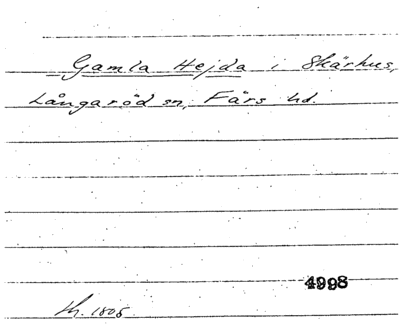 Gamla Hejda i Skärhus,
Långaröd sn, Färs hd.
4998
th. 1805